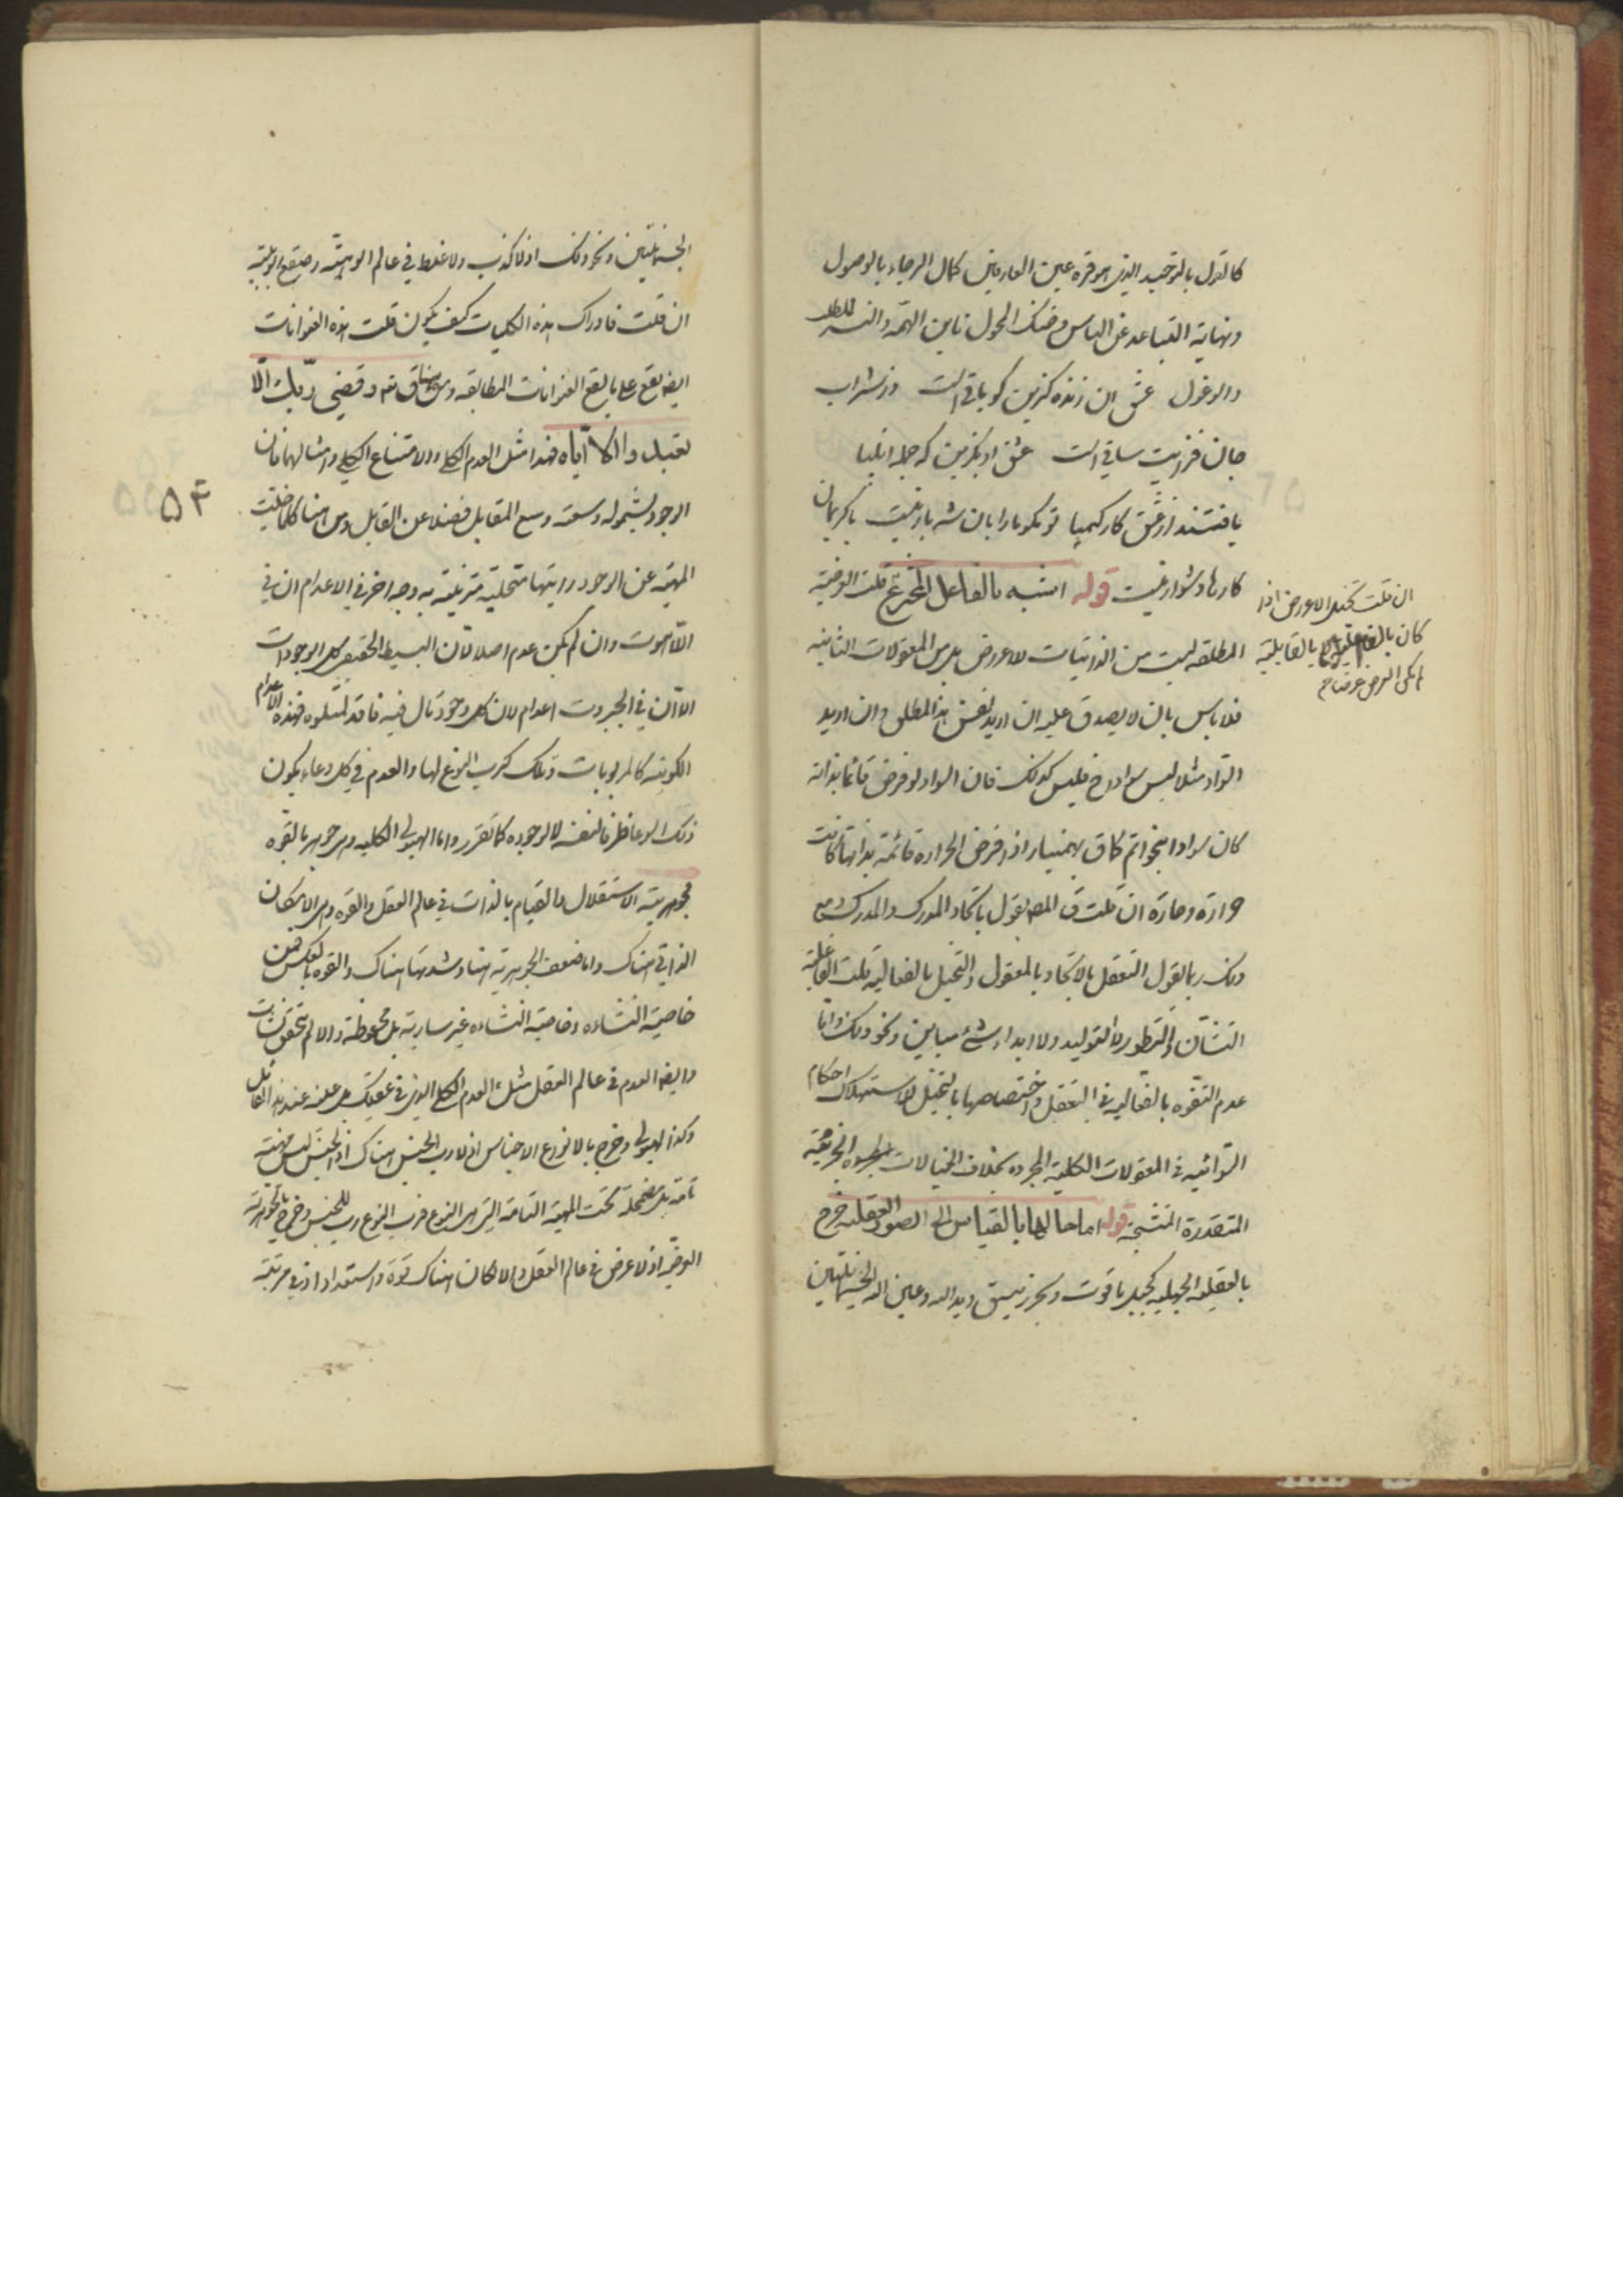 كالقول بالتوحيد الذى هو قره عين العارفين كمال الرجاء بالوصول
ونهاية التباعد عن الياس وضنك المحول تامين الهمه والنيه للطلب
والوغول عشق ان زنده كزين كو باقى است وز شراب
جان فزايت ساقى است عشق او بكزين كه جمله انبيا
يافتند از عشق كار كيميا تو مكو ما را بان شه بار نيست با كريمان
كارها دشوار نيست قوله اشبه بالفاعل المخترع قلت العرضية
المطلقه ليست من الذاتيات للاعراض بل من المعقولات الثانيه
فلا باس بان لا يصدق عليه ان اريد نفس هذا المطلق وان اريد
السواد مثلا ليس سوادا ح فليس كذلك فان السواد لو فرض قائما بذاته
كان سوادا بنحو اتم كما ق بهمنيار اذا فرض الحراره قائمة بذاتها كانت
حرارة وحارة ان قلت ق المص يقول باتحاد المدرك والمدرك ومع
ذلك ربما يقول التعقل بالاتحاد بالمعقول والتخيل بالفعاليه قلت الفاعلية
التشان والتطور لا التوليد ولا ابداء شئ مباين ونحو ذلك واما
عدم التفوه بالفعاليه فى التعقل واختصاصها بالتخيل لاستهلاك احكام
السوائيه فى المعقولات الكليه المجرده بخلاف الخيالات الجزئية
المتقدرة المتشبحة قوله اما حالها بالقياس الى الصور العقليه خرج
بالعقليه الجهليه كجبل ياقوت وبحر زيبق ويد الله وعين الله الخياليتين
ان قلت تخيل الاعراض اذا
كان بالفاعليه لا بالقابلية
لم يكن العرض عرضا ح
الجسمانيتين ونحو ذلك اذ لا كذب ولا غلط فى عالم الالوهية وصقع الربوبية
ان قلت فادراك هذه الكليات كيف يكون قلت هذه العنوانات
ايضا يقع على ما يقع العنوانات المطابقه ومن هنا ق تعه وقضى ربك الا
تعبدوا الا اياه فهذا مثل العدم الكلى والامتناع الكلى وامثالهما فان
الوجود بشموله وسعته وسع المقابل فضلا عن القابل ومن هنا كلما خليت
المهية عن الوجود رايتها متحلية متزينة به وجه اخر فى الاعدام ان فى
اللاهوت وان لم يكن عدم اصلا لان البسيط الحقيقى كل الوجودات
الا ان فى الجبروت اعدام لان كل وجود تال فيه فاقد لمتلوه فهذه الاعدام
الكونيه كالمربوبات وتلك كرب النوع لها والعدم فى كل وعاء يكون
ذلك الوعا ظرفا لنفسه لا لوجوده كما تقرر واما الهيولى الكليه وهى جوهر بالقوه
فجوهريته الاستقلال والقيام بالذات فى عالم العقل والقوه هى الامكان
الذاتى هناك واما ضعف الجوهرية هنا وشدتها هناك والقوه بالعكس فمن
خاصية النشاه وخاصية النشاه غير سارية بل محفوظة والا لم يتحقق نشات
وايضا العدم فى عالم العقل مثل العدم الكلى الذى فى عقلك بل عينه عند هذا القائل
وكذا الهيولى وخرج بالانواع الاجناس اذ لا رب الجنس هناك اذ الجنس ليس مهية
تامة بل مضمحلة تحت المهية التامة التى هى النوع فرب النوع رب للجنس وخرج بالجوهرية
العرضيه اذ لا عرض فى عالم العقل والا لكان هناك قوة واستعداد اذ فى مرتبة
٥٣